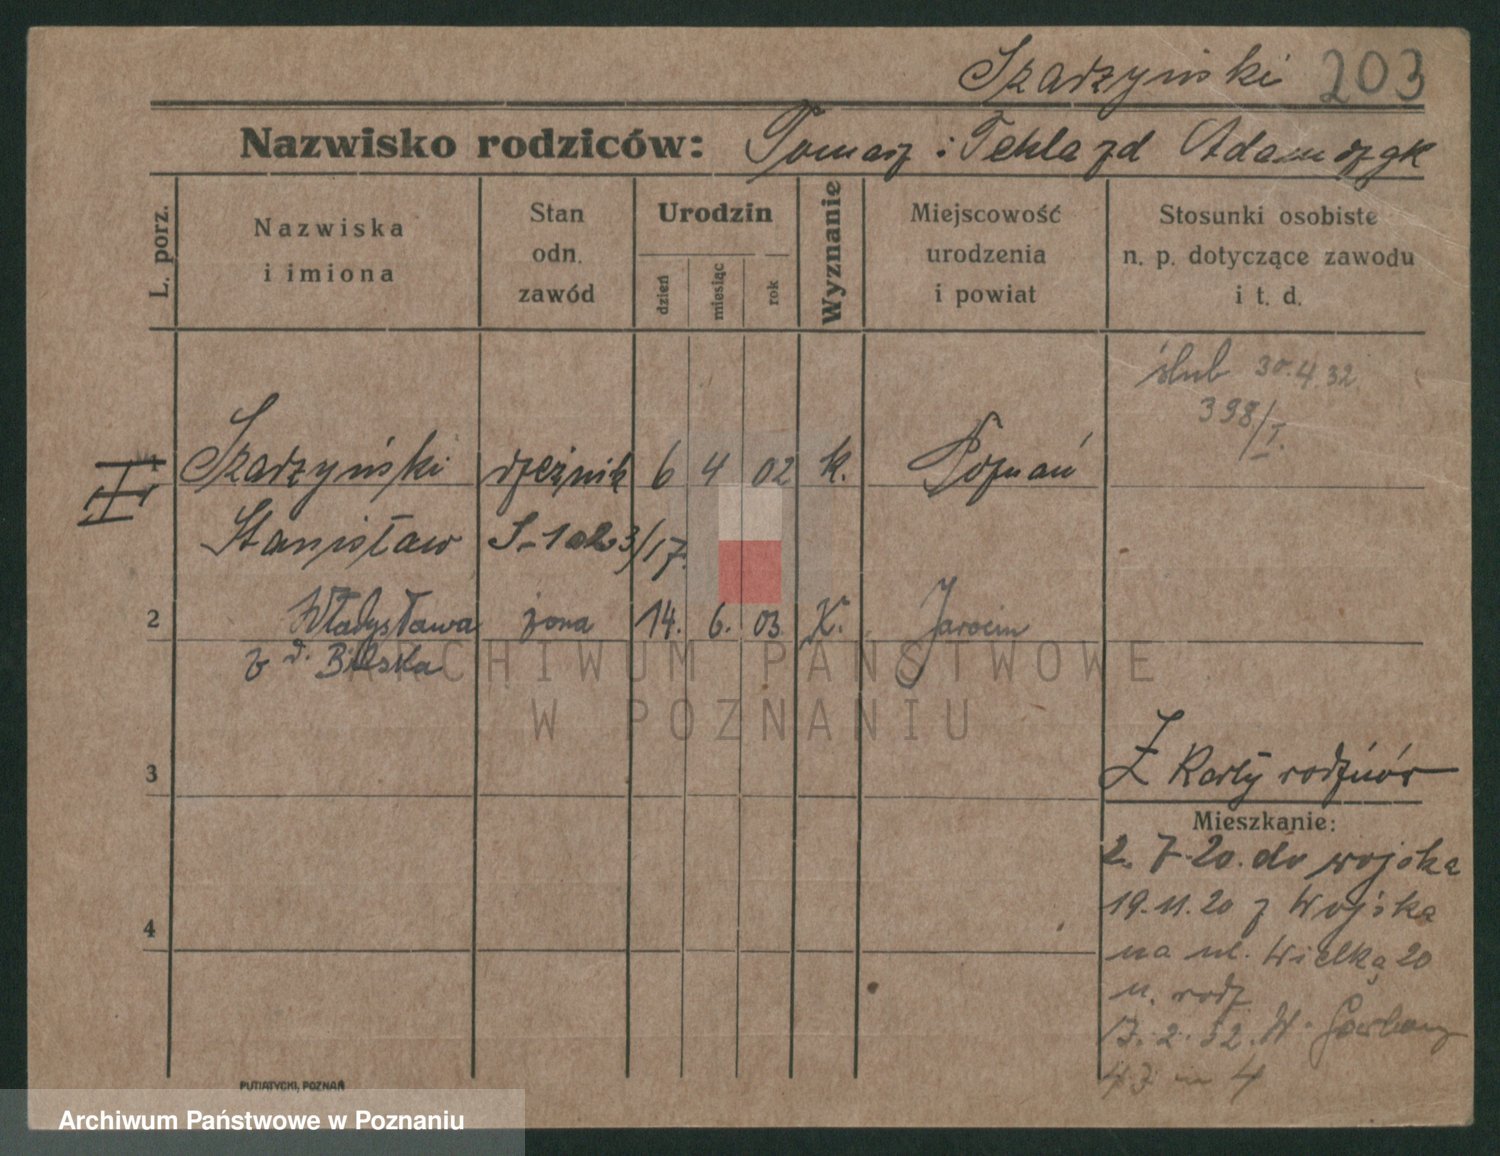 Szadzyński 203
Nazwisko rodziców: Tomasz i Tekla zd Adamczyk
L. porz.
Nazwiska
i imiona
Stan
odn.
zawód
Urodzin
dzień
miesiąc
rok
Wyznanie
Miejscowość
urodzenia
i powiat
Stosunki osobiste
n. p. dotyczące zawodu
i t. d.
ślub 30.4.32
398/I.
Szadzyński rzeźnik 6 4 02 k. Poznań
Stanisław S-1023/17.
2 Władysława żona 14. 6. 03 K. Jarocin
z d. Bilska
ARCHIWUM PAŃSTWOWE
W POZNANIU
3
Z Karty rodziców
Mieszkanie:
2. 7. 20. do wojska
19.11.20 z Wojska
na ul. Wielką 20
u. rodz
17.2.32. W. Garbary
47 m 4
4
PUTIATYCKI, POZNAŃ
Archiwum Państwowe w Poznaniu